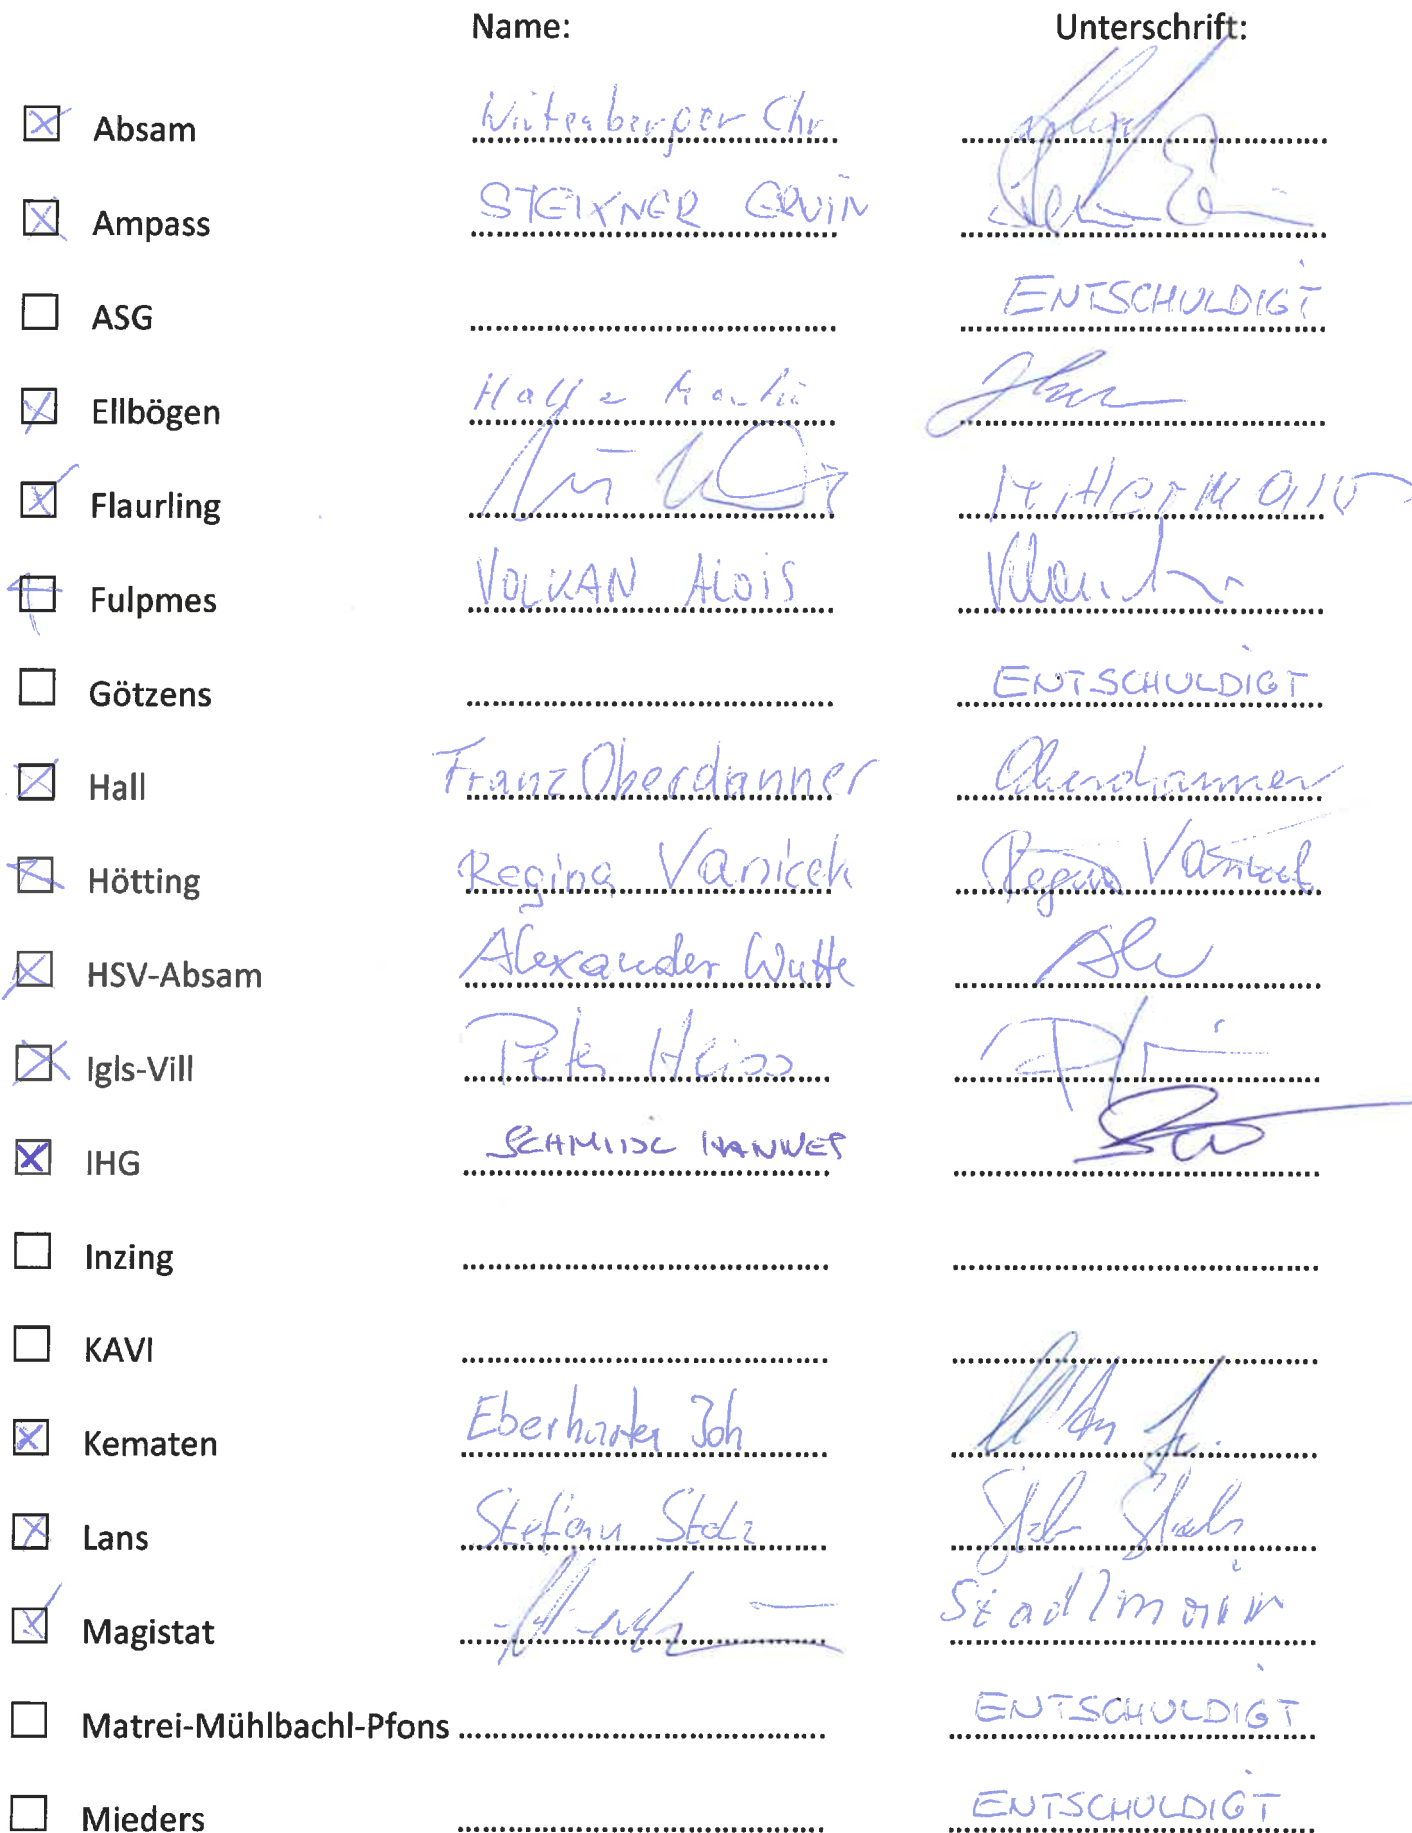 Name: Unterschrift:
Absam Chr
Ampass STEIXNER ERWIN
ASG ENTSCHULDIGT
Ellbögen
Flaurling
Fulpmes VOLKAN ALOIS
Götzens ENTSCHULDIGT
Hall Franz Oberdanner Oberdanner
Hötting Regina Vanicek Regina Vanicek
HSV-Absam Alexander Wutte
Igls-Vill Peter Heiss
IHG HANNES
Inzing
KAVI
Kematen Eberharter Joh
Lans Stefan Stolz
Magistat
Matrei-Mühlbachl-Pfons ENTSCHULDIGT
Mieders ENTSCHULDIGT